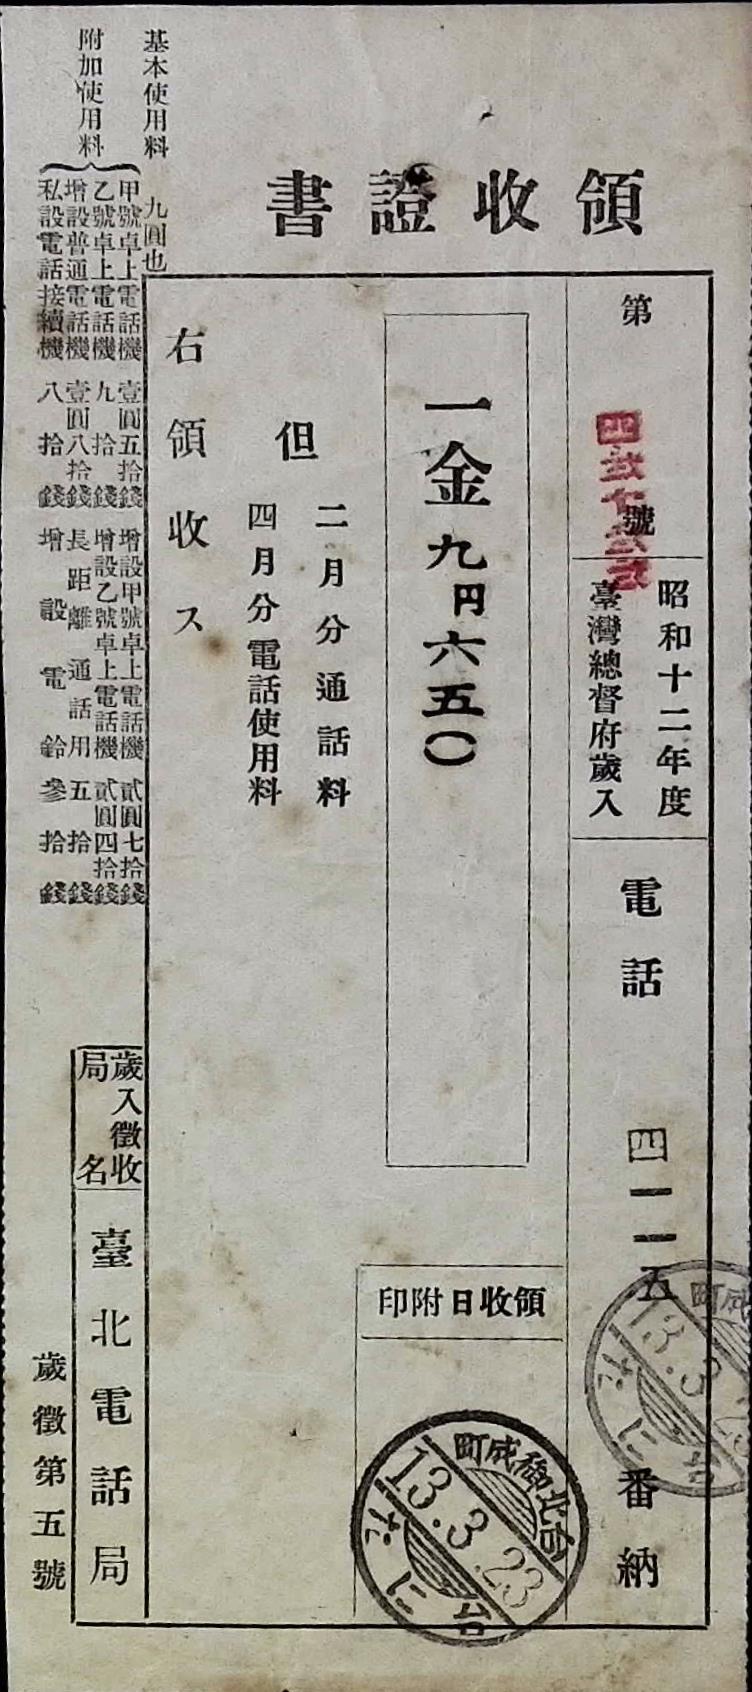 領收證書
第
號
昭和十二年度
臺灣總督府歲入
電話
四一一五
番納
一金九円六五〇
領收日附印
台北御成町
13.3.23
但
二月分通話料
四月分電話使用料
右領收ス
基本使用料 九圓也
附加使用料
甲號卓上電話機 壹圓五拾錢
乙號卓上電話機 九拾錢
增設普通電話機 壹圓八拾錢
私設電話接續機 八拾錢
增設甲號卓上電話機 貳圓七拾錢
增設乙號卓上電話機 貳圓四拾錢
長距離通話用 五拾錢
增設電鈴 參拾錢
歲入徵收
局名
臺北電話局
歲徵第五號